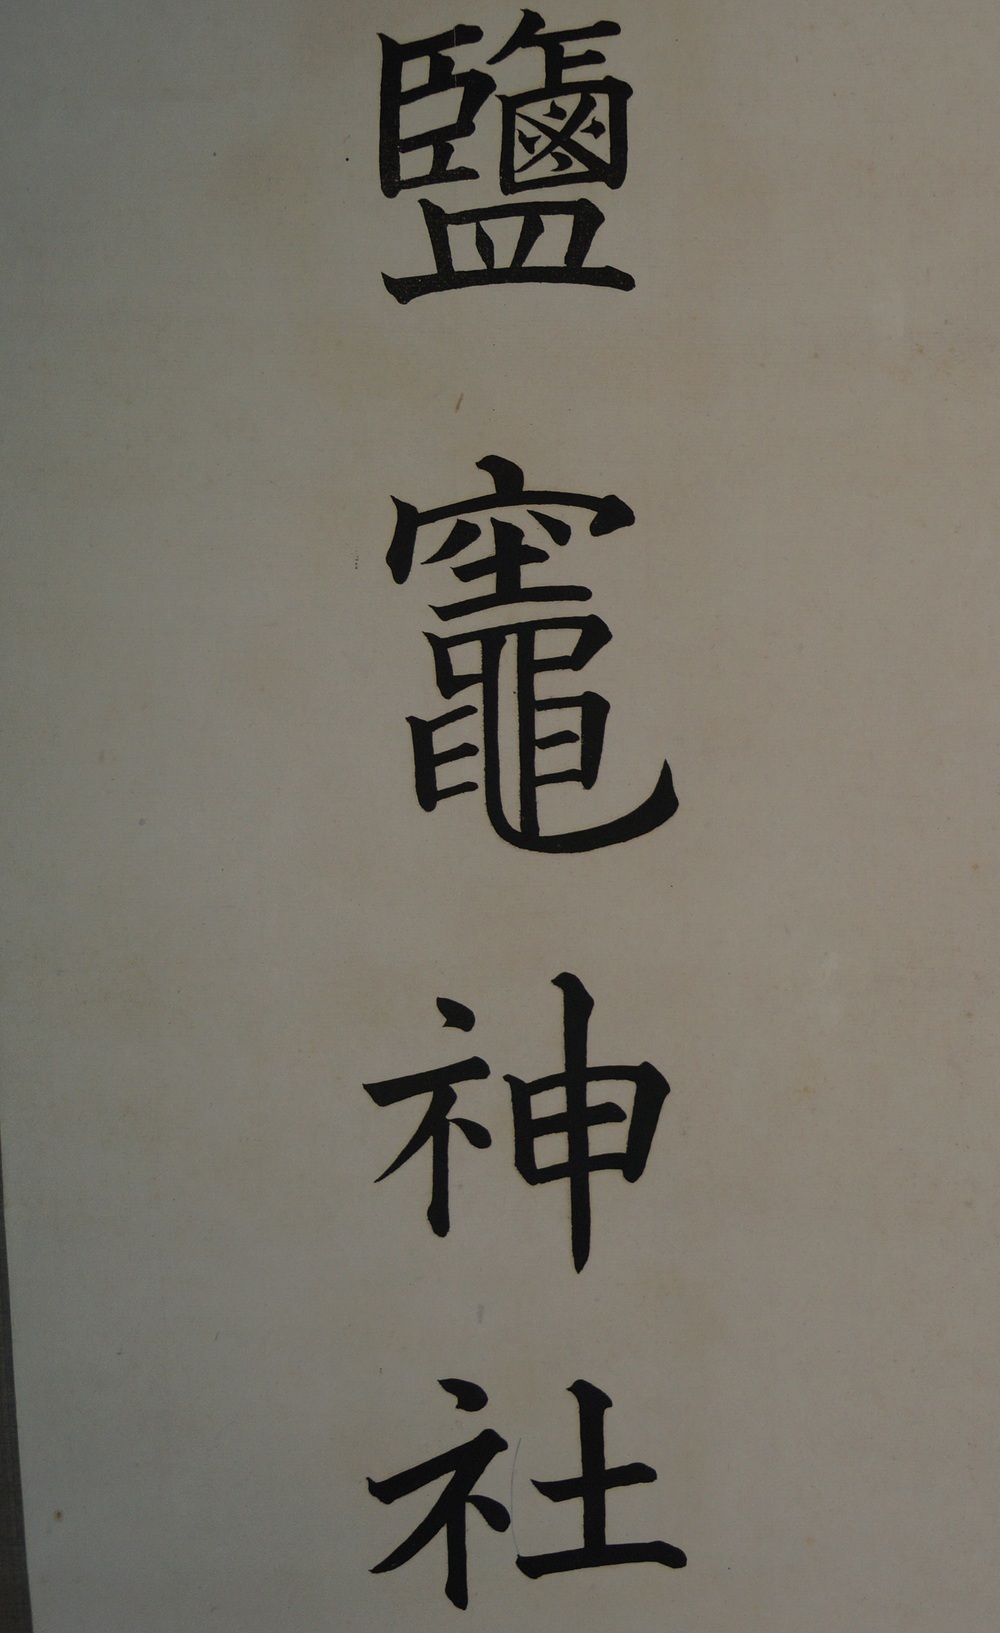 鹽竈神社